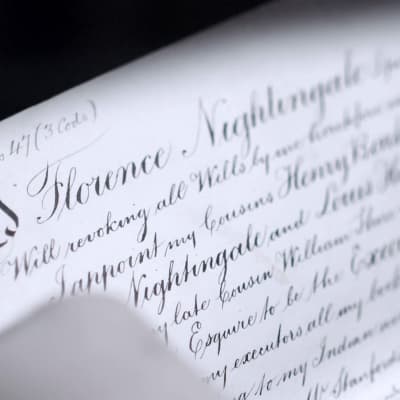 47 (3 Cods)
I Florence Nightingale
Will revoking all Wills by me heretofore
I appoint my Cousins Henry Bonham
Nightingale and Louis
late Cousin William Shore
Esquire to be the
my executors all my
to my Indian
Mr Stanford